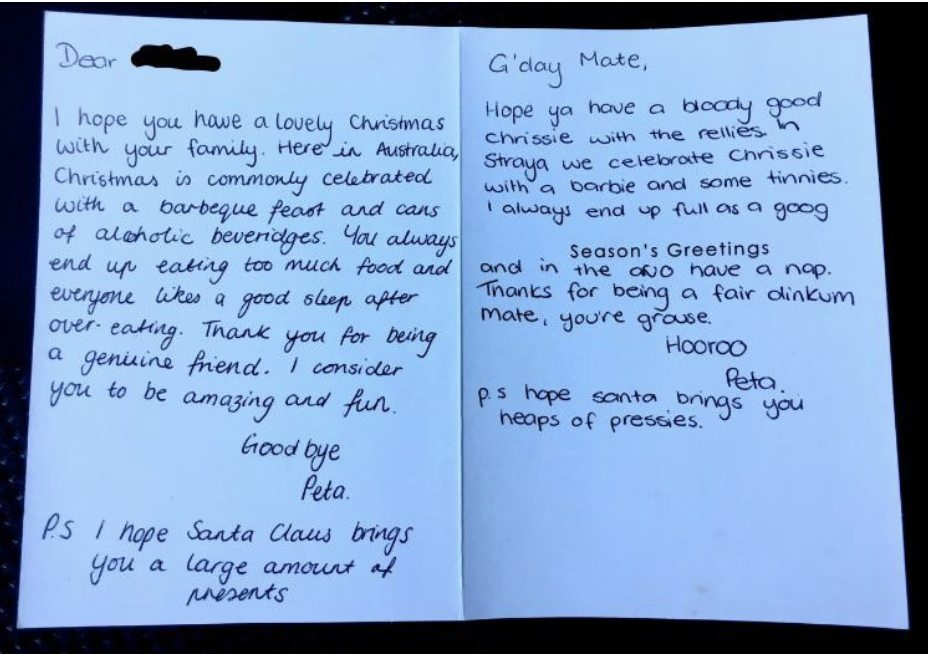 Dear
I hope you have a lovely Christmas
with your family. Here in Australia,
Christmas is commonly celebrated
with a barbeque feast and cans
of alcoholic beveridges. You always
end up eating too much food and
everyone likes a good sleep after
over-eating. Thank you for being
a genuine friend. I consider
you to be amazing and fun.
Good bye
Peta.
P.S I hope Santa Claus brings
you a large amount of
presents
G'day Mate,
Hope ya have a bloody good
chrissie with the rellies. In
Straya we celebrate Chrissie
with a barbie and some tinnies.
I always end up full as a goog
Season's Greetings
and in the arvo have a nap.
Thanks for being a fair dinkum
mate, you're grouse.
Hooroo
Peta.
p.s hope santa brings you
heaps of pressies.